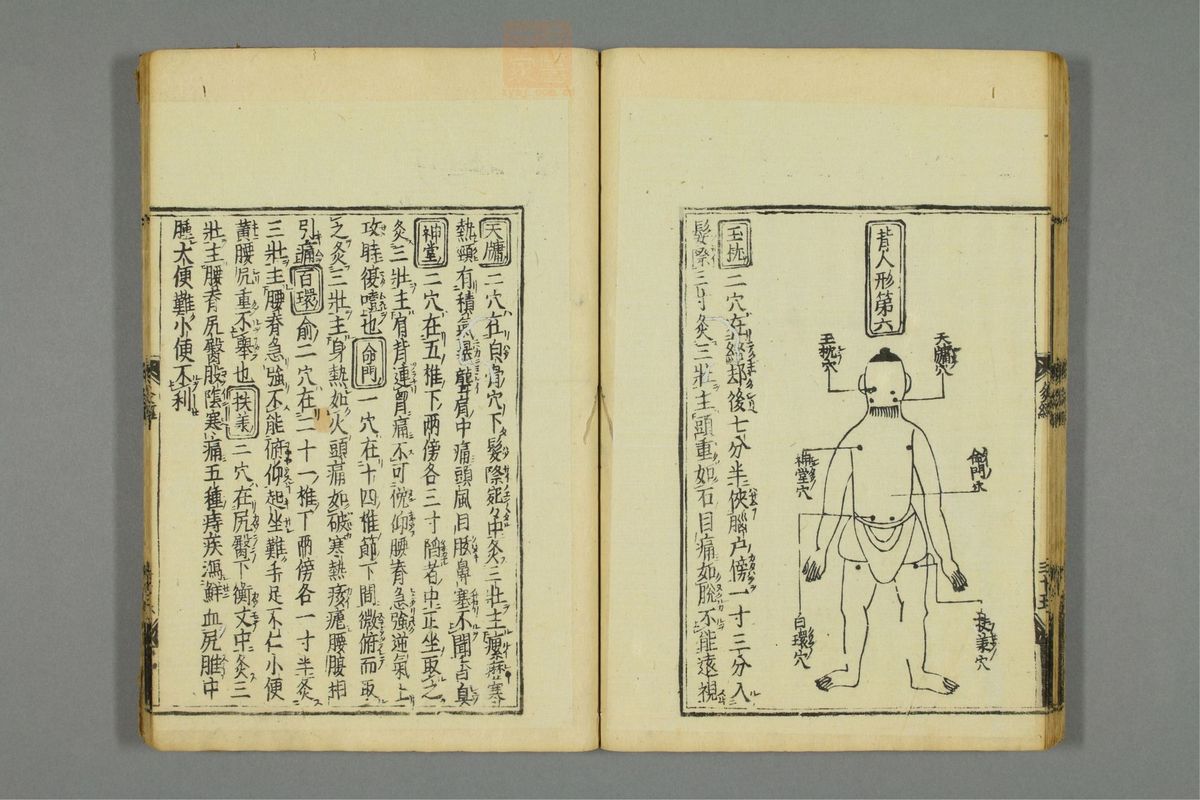 背人形第六
天牖穴
玉枕穴
命門穴
神堂穴
扶兼穴
白環穴
玉枕二穴在絡却後七分半俠腦户傍一寸三分入
髮際三寸灸三壯主頭重如石目痛如脫不能遠視
灸經
三十五
天牖二穴在白骨穴下髮際宛中灸三壯主瘰癧寒
熱頸有積氣暴聾肩中痛頭風目眩鼻塞不聞香臭
神堂二穴在五椎下兩傍各三寸陷者中正坐取之
灸三壯主肩背連胷痛不可俛仰腰脊急強逆氣上
攻時復噎也命門一穴在十四椎節下間微俯而取
之灸三壯主身熱如火頭痛如破寒熱痎瘧腰腹相
引痛百環俞二穴在二十一椎下兩傍各一寸半灸
三壯主腰脊急強不能俯仰起坐難手足不仁小便
黃腰尻重不舉也扶兼二穴在尻臀下衡文中灸三
壯主腰脊尻臀股陰寒痛五種痔疾瀉鮮血尻脽中
腫大便難小便不利